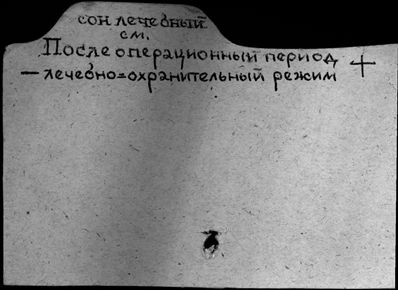 сон лечебный
см.
После операционный период +
— лечебно=охранительный режим